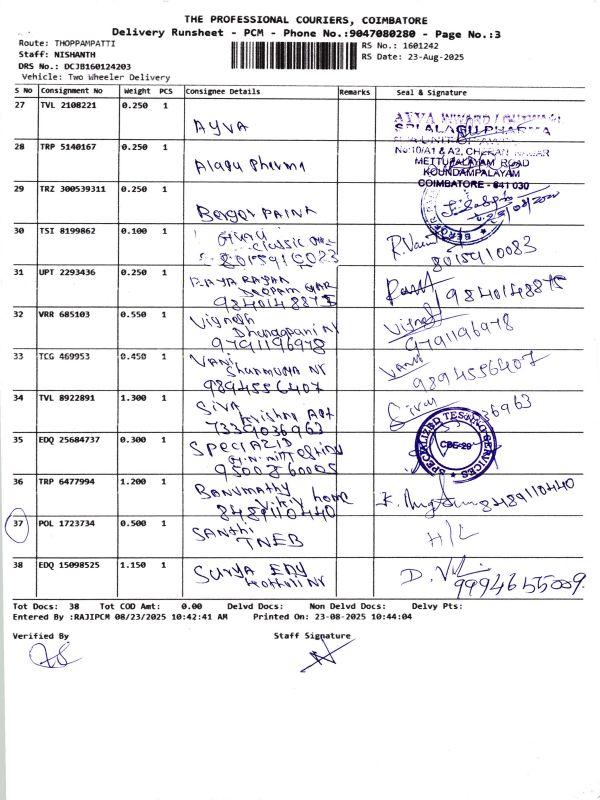 THE PROFESSIONAL COURIERS, COIMBATORE
Delivery Runsheet - PCM - Phone No.:9047080280 - Page No.:3
Route: THOPPAMPATTI
Staff: NISHANTH
DRS No.: DCJB160124203
Vehicle: Two Wheeler Delivery
RS No.: 1601242
RS Date: 23-Aug-2025
S No Consignment No Weight PCS Consignee Details Remarks Seal & Signature
27 TVL 2108221 0.250 1 AYVA
28 TRP 5140167 0.250 1 Alagu Pharma
SRI ALAGU PHARMA
No:10/A1 & A2, CHERAN NAGAR
METTUPALAYAM ROAD
KOUNDAMPALAYAM
COIMBATORE - 641 030
29 TRZ 300539311 0.250 1 Berger PAINT
30 TSI 8199862 0.100 1
classic
8015910083
8015910083
31 UPT 2293436 0.250 1
9840148875
9840148875
32 VRR 685103 0.550 1 Vignesh
Dhanappani Nr
9791196978
9791196978
33 TCG 469953 0.450 1 VANI
Shanmuga Nr
9894556407
9894556407
34 TVL 8922891 1.300 1 Siva
Krishna Apt
7339036963
35 EDQ 25684737 0.300 1
SPECIALIZED TESTING SERVICES
CBE-29
36 TRP 6477994 1.200 1 Banumathy
home
8489110440
8489110440
37 POL 1723734 0.500 1 Santhi
TNEB
H/L
38 EDQ 15098525 1.150 1 Surya
9994655009.
Tot Docs: 38 Tot COD Amt: 0.00 Delvd Docs: Non Delvd Docs: Delvy Pts:
Entered By :RAJIPCM 08/23/2025 10:42:41 AM Printed On: 23-08-2025 10:44:04
Verified By Staff Signature